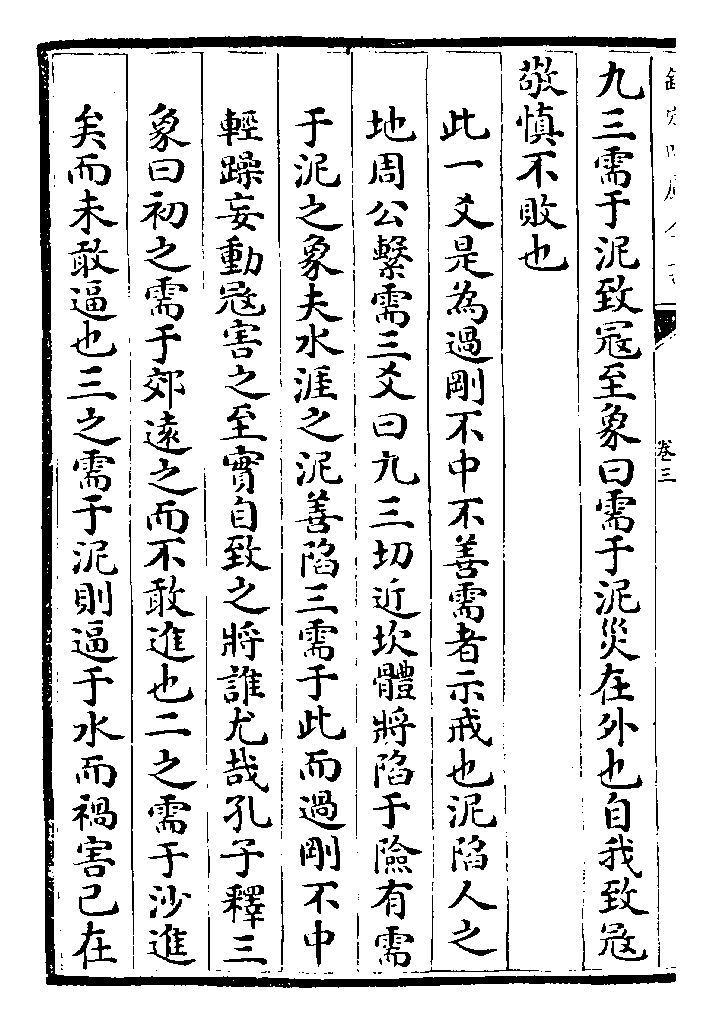 九三需于泥致寇至象曰需于泥災在外也自我致寇
敬慎不敗也
此一爻是為過剛不中不善需者示戒也泥陷人之
地周公繫需三爻曰九三切近坎體將陷于險有需
于泥之象夫水涯之泥善陷三需于此而過剛不中
輕躁妄動寇害之至實自致之將誰尤哉孔子釋三
象曰初之需于郊遠之而不敢進也二之需于沙進
矣而未敢逼也三之需于泥則逼于水而禍害已在
卷三